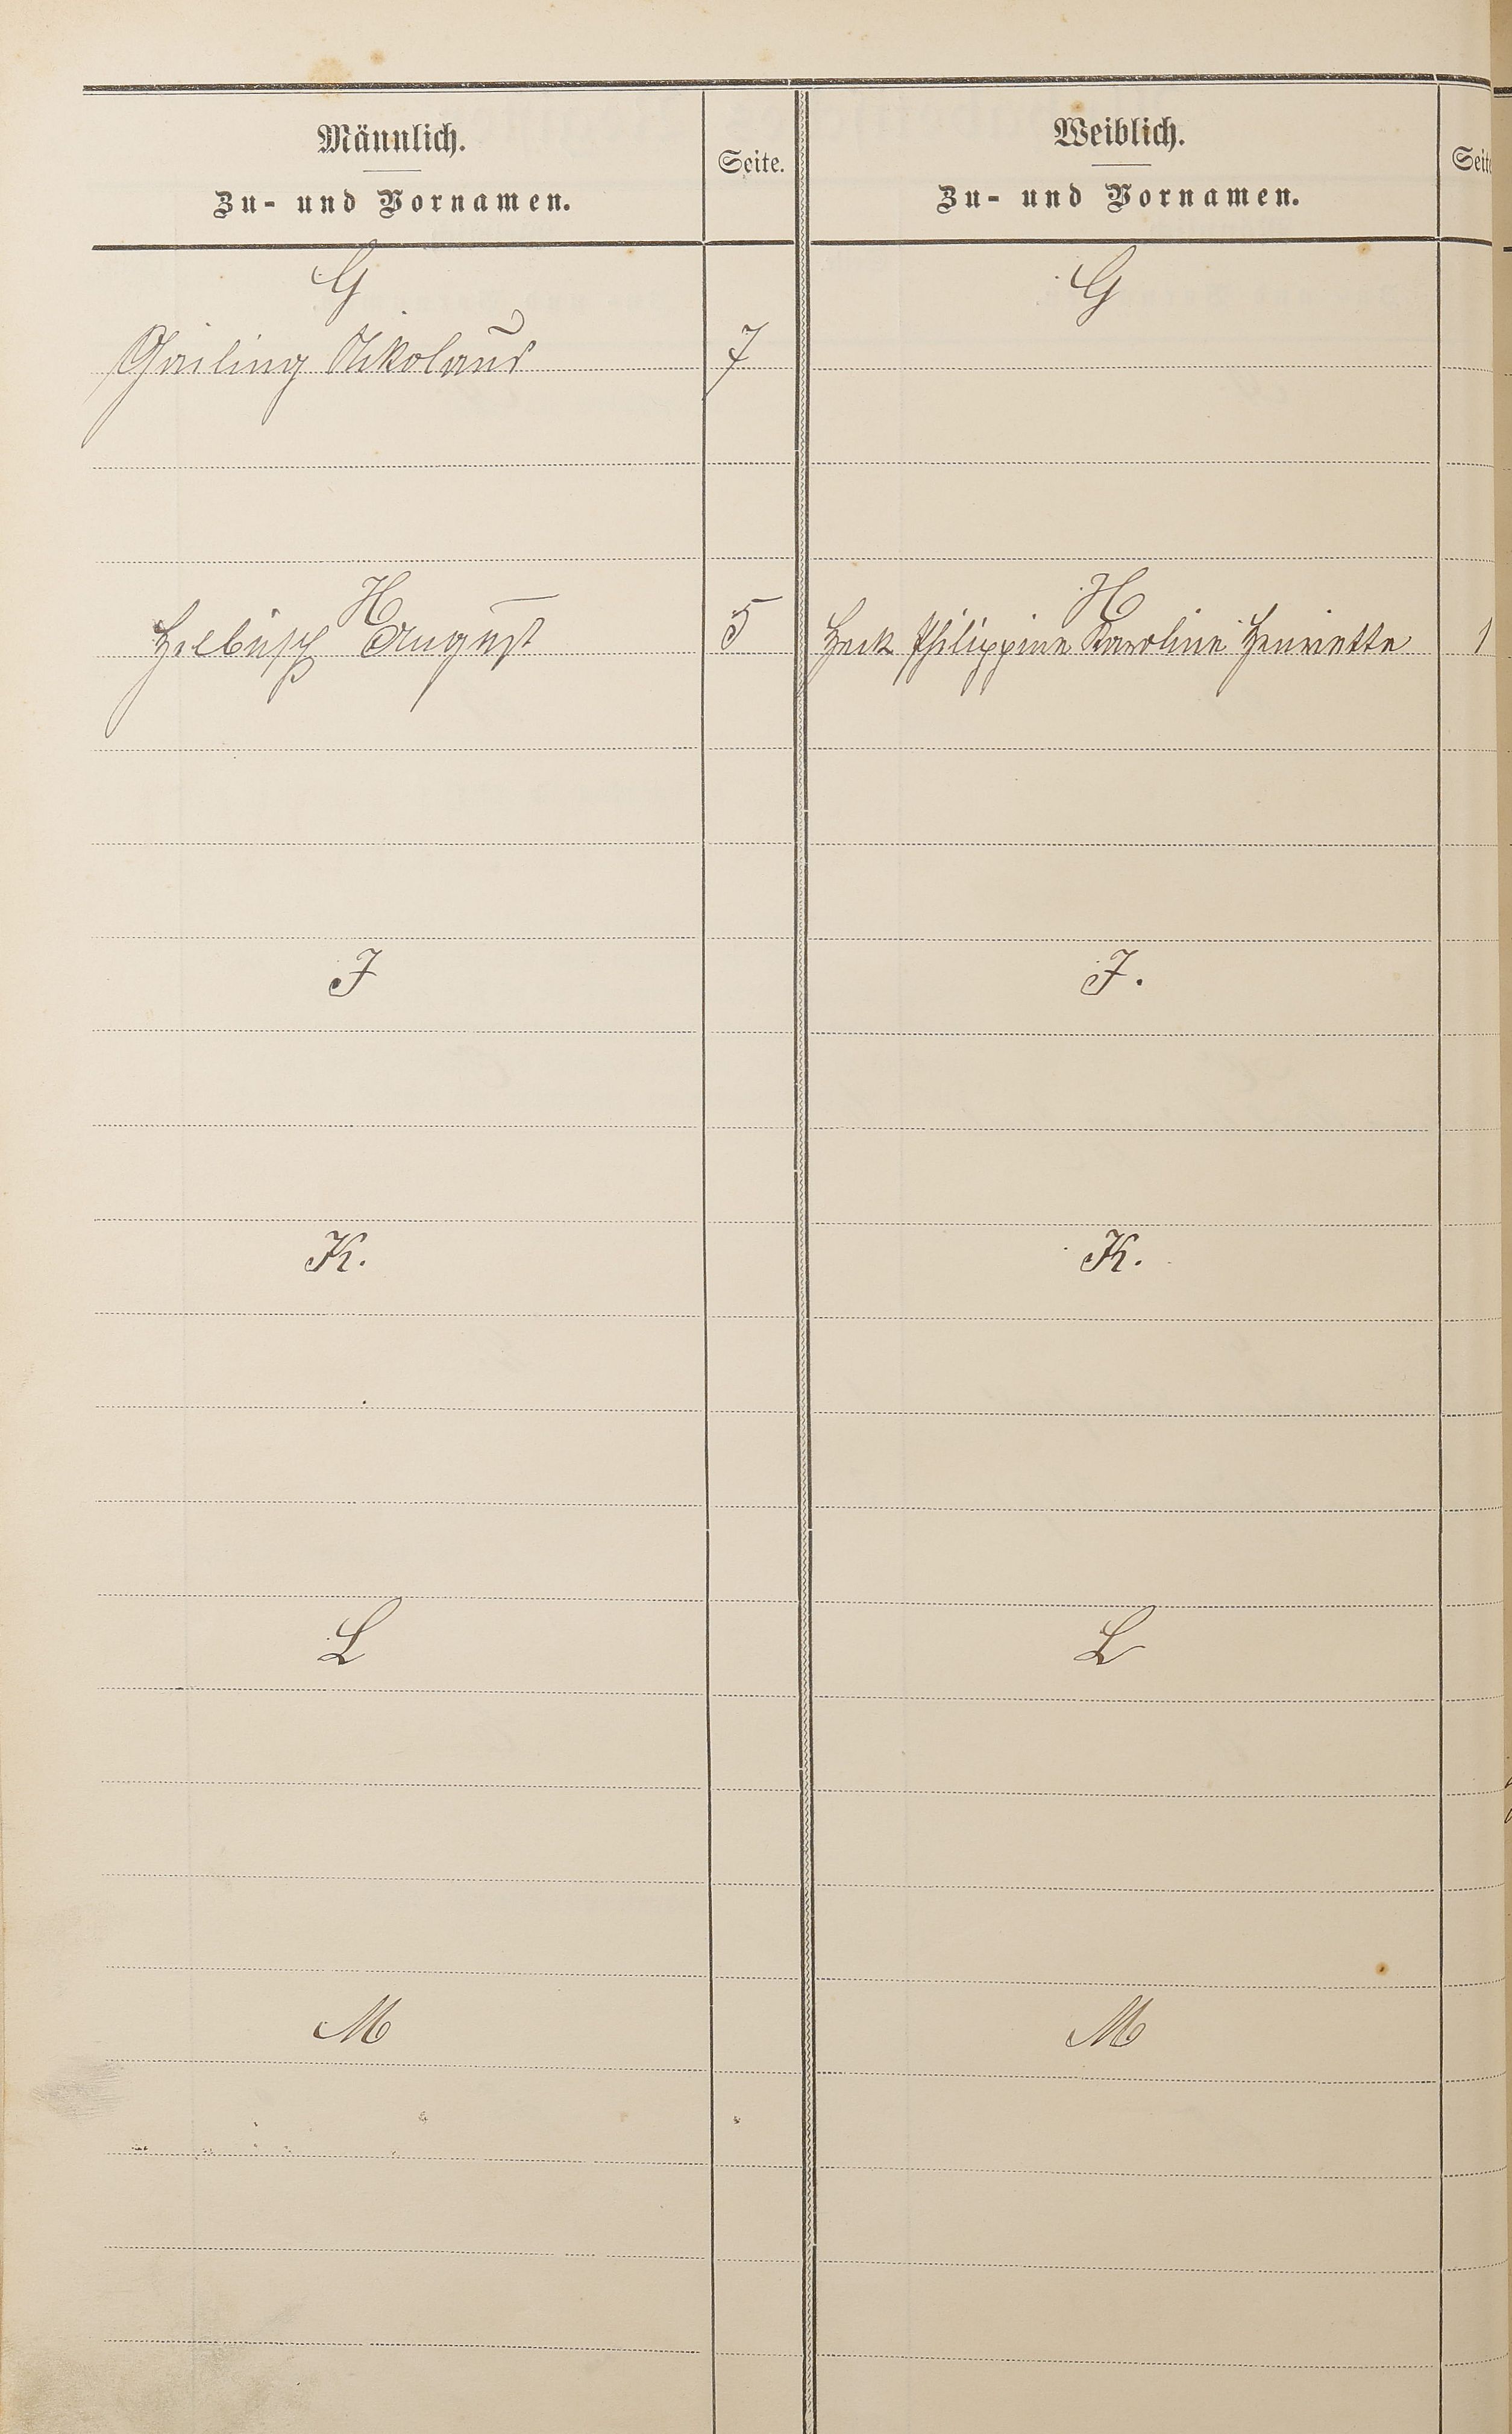 Männlich.
Zu- und Vornamen.
Seite.
Weiblich.
Zu- und Vornamen.
Seite
G
G
Gailing Nikolaus
7
H
H
August
5
Heck Philippine Karoline Henriette
1
J
J.
K.
K.
L
L
M
M